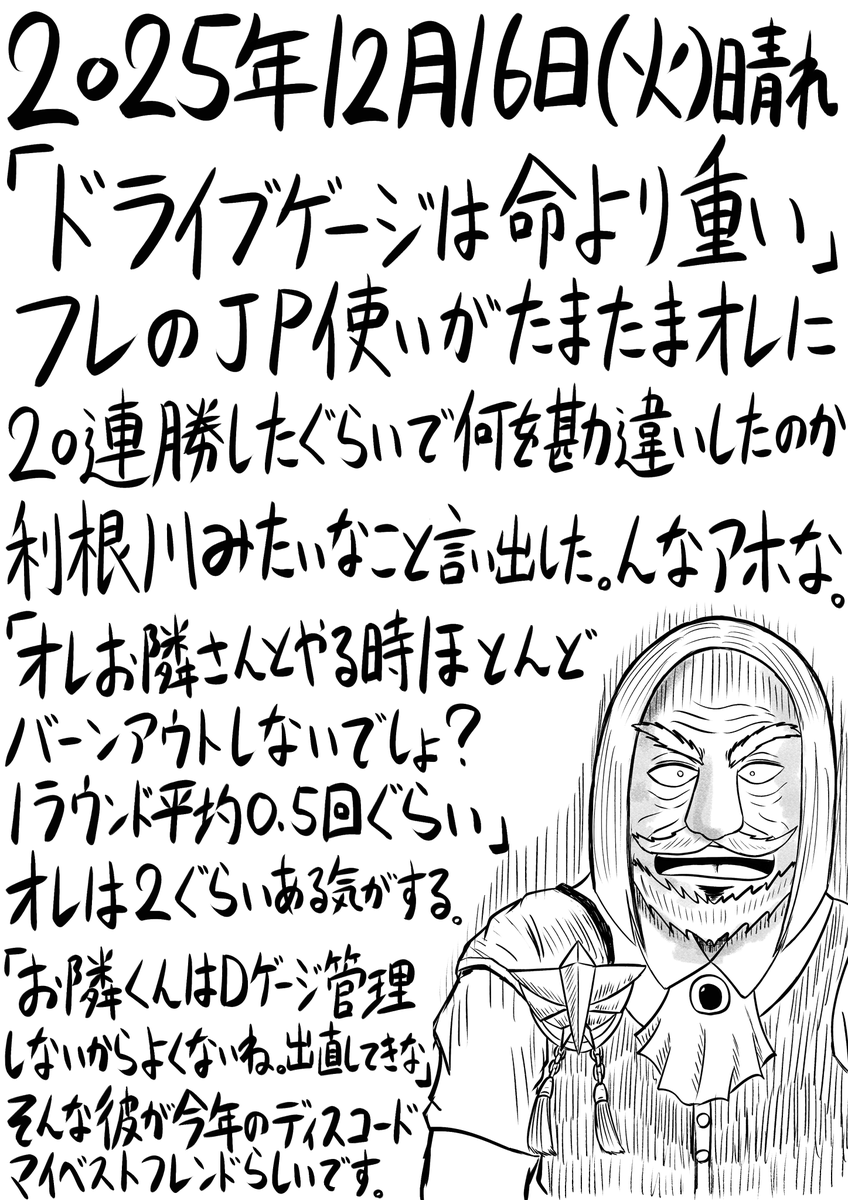 2025年12月16日(火)晴れ
「ドライブゲージは命より重い」
フレのJP使いがたまたまオレに
20連勝したぐらいで何を勘違いしたのか
利根川みたいなこと言い出した。んなアホな。
「オレお隣さんとやる時ほとんど
バーンアウトしないでしょ?
1ラウンド平均0.5回ぐらい」
オレは2ぐらいある気がする。
「お隣くんはDゲージ管理
しないからよくないね。出直してきな」
そんな彼が今年のディスコード
マイベストフレンドらしいです。